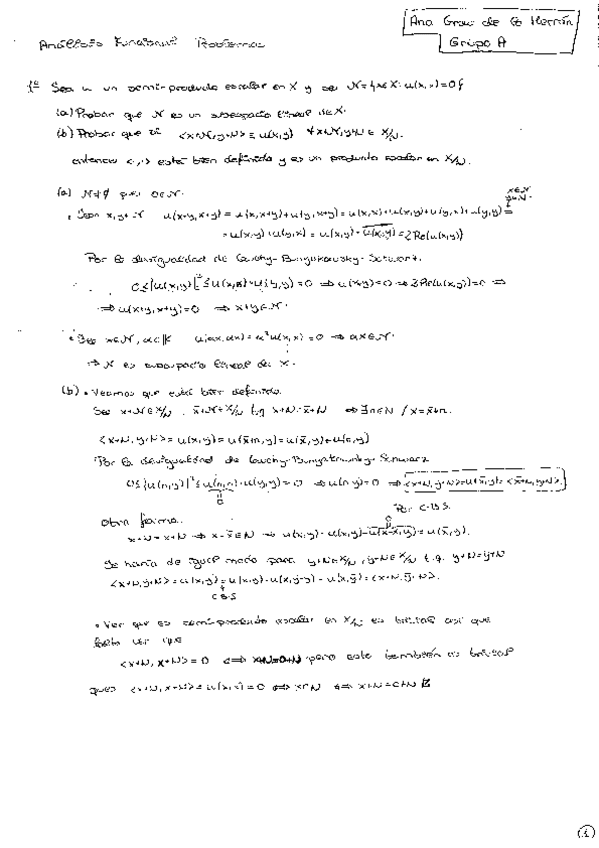 Ana Grau de la Herrán
Grupo A
Análisis Funcional Problemas
1º Sea u un semi-producto escalar en X y sea N = {x∈X: u(x,x)=0}
(a) Probar que N es un subespacio lineal de X.
(b) Probar que si <x+N, y+N> = u(x,y) ∀x+N, y+N ∈ X/N.
entonces <·,·> está bien definido y es un producto escalar en X/N.
(a) N≠∅ pues 0∈N.
• Sean x,y∈N u(x+y,x+y) = u(x,x+y)+u(y,x+y) = u(x,x)+u(x,y)+u(y,x)+u(y,y) =
x∈N
y∈N
= u(x,y)+u(y,x) = u(x,y)+\overline{u(x,y)} = 2Re(u(x,y))
Por la desigualdad de Cauchy-Bunyakovsky-Schwarz.
0≤|u(x,y)|² ≤ u(x,x)·u(y,y) = 0 ⇒ u(x,y)=0 ⇒ 2Re(u(x,y))=0 ⇒
⇒ u(x+y,x+y)=0 ⇒ x+y∈N.
• Sea x∈N, α∈K u(αx,αx) = α²u(x,x) = 0 ⇒ αx∈N.
⇒ N es subespacio lineal de X.
(b) • Veamos que está bien definido.
Sea x+N∈X/N, x̄+N∈X/N tq x+N=x̄+N ⇒ ∃n∈N / x=x̄+n.
<x+N, y+N> = u(x,y) = u(x̄+n,y) = u(x̄,y)+u(n,y)
Por la desigualdad de Cauchy-Bunyakovsky-Schwarz
0≤|u(n,y)|² ≤ u(n,n)·u(y,y) = 0 ⇒ u(n,y)=0 ⇒ <x+N,y+N>=u(x̄,y)=<x̄+N,y+N>.
0
Por C-B-S.
Otra forma.
x+N = x̄+N ⇒ x-x̄∈N ⇒ u(x,y) = u(x,y)-u(x-x̄,y) = u(x̄,y).
0
Se haría de igual modo para y+N∈X/N, ȳ+N∈X/N t.q. y+N=ȳ+N
<x+N,y+N> = u(x,y) = u(x,y)-u(x,y-ȳ) = u(x,ȳ) = <x+N,ȳ+N>.
C-B-S
• Ver que es semi-producto escalar en X/N es trivial así que
falta ver que
<x+N, x+N> = 0 ⇔ x+N=0+N pero este también es trivial
pues <x+N, x+N> = u(x,x) = 0 ⇔ x∈N ⇔ x+N=0+N
1